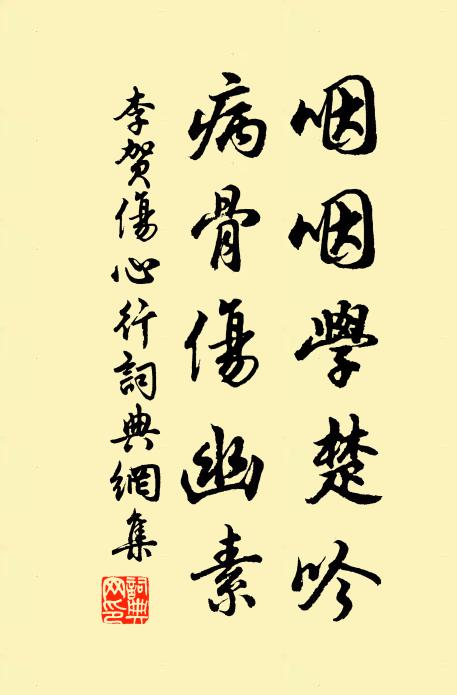 咽咽學楚吟
病骨傷幽素
李賀傷心行詞典網集
詞典
网印